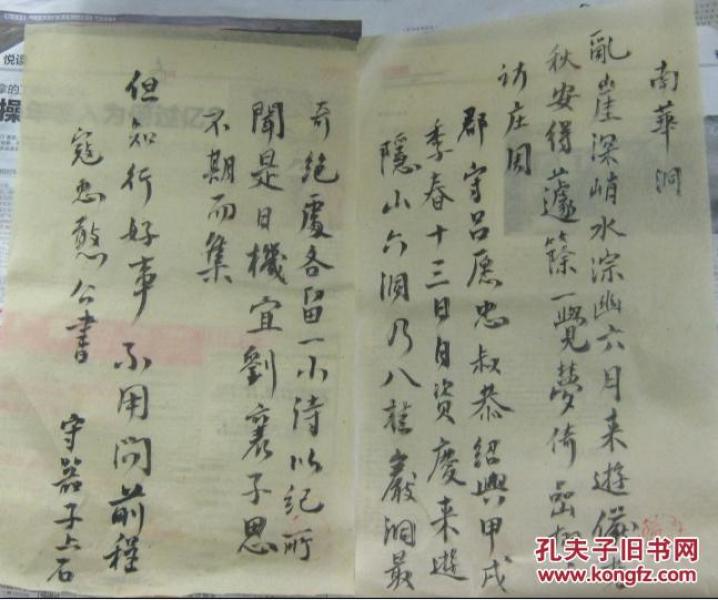 南華洞
亂崖深峭水淙幽六月来遊似
秋安得蘧篨一覺夢倚
訪庄周
郡守呂愿忠叔恭紹興甲戌
季春十三日自資慶来遊
隱山六洞乃八桂巖洞最
奇絶處各留一小诗以紀所
聞是日機宜劉襄子思
不期而集
但知行好事不用问前程
寇忠愍公書
守器子上石
孔夫子旧书网
www.kongfz.com